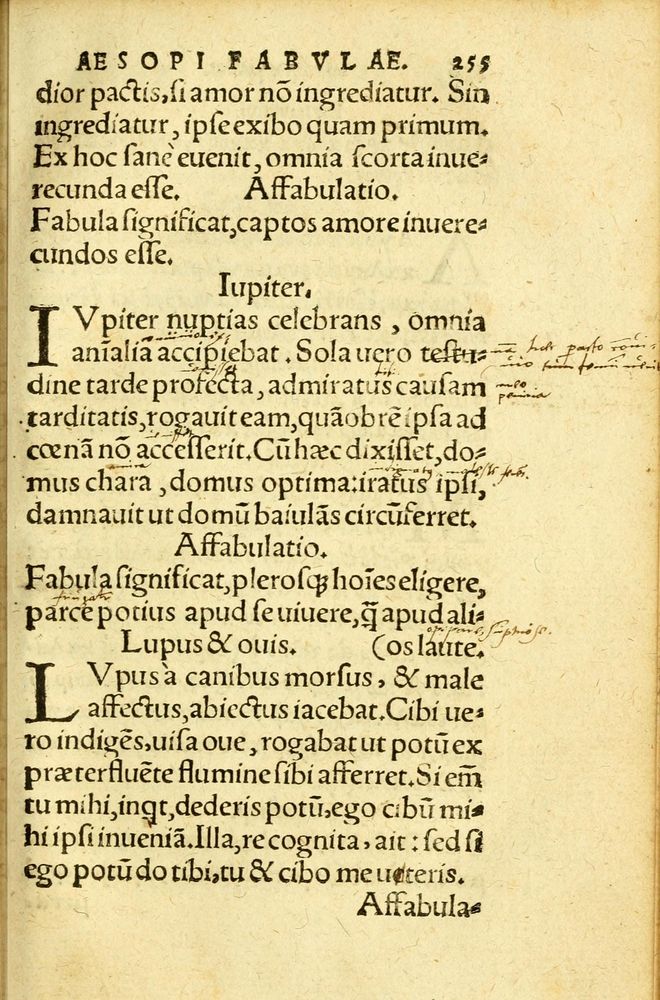 AESOPI FABVLAE. 255
dior pactis, si amor nõ ingrediatur. Sin
ingrediatur, ipse exibo quam primum.
Ex hoc sanè euenit, omnia scorta inue-
recunda esse. Affabulatio.
Fabula significat, captos amore inuere-
cundos esse.
Iupiter.
IVpiter nuptias celebrans, omnia
animalia accipiebat. Sola uero testu-
dine tarde profecta, admiratus causam
tarditatis, rogauit eam, quãobrẽ ipsa ad
cœnã nõ accesserit. Cũ hæc dixisset, do-
mus chara, domus optima: iratus ipsi,
damnauit ut domũ baiulãs circũferret.
Affabulatio.
Fabula significat, plerosq; hoĩes eligere,
parce potius apud se uiuere, q̃ apud ali-
Lupus & ouis. (os laute.
LVpus à canibus morsus, & male
affectus, abiectus iacebat. Cibi ue-
ro indigẽs, uisa oue, rogabat ut potũ ex
præterfluẽte flumine sibi afferret. Si em̃
tu mihi, inqt, dederis potũ, ego cibũ mi-
hi ipsi inueniã. Illa, re cognita, ait: sed si
ego potũ do tibi, tu & cibo me uteris.
Affabula-